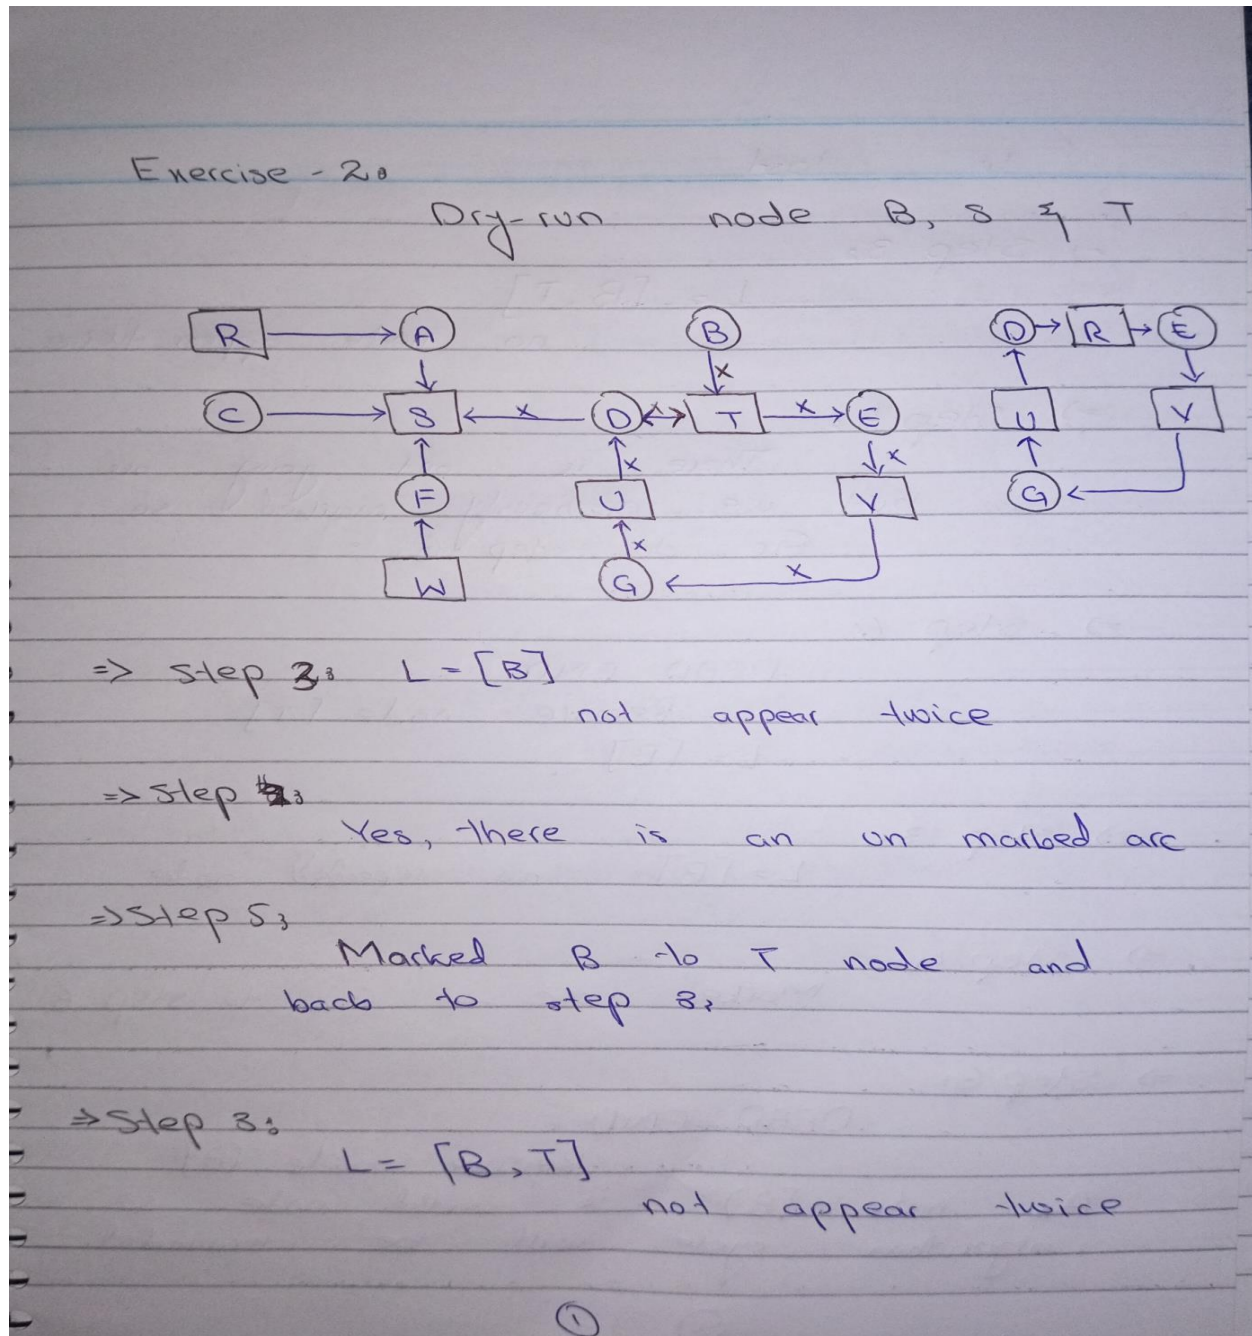 Exercise - 2:
Dry-run node B, S & T
R A B D R E
C S D T E U V
F U V G
W G
x x x x x x x x
=> Step 3: L = [B]
not appear twice
=> Step 4:
Yes, there is an un marked arc.
=> Step 5:
Marked B to T node and
back to step 3:
=> Step 3:
L = [B, T]
not appear twice
1